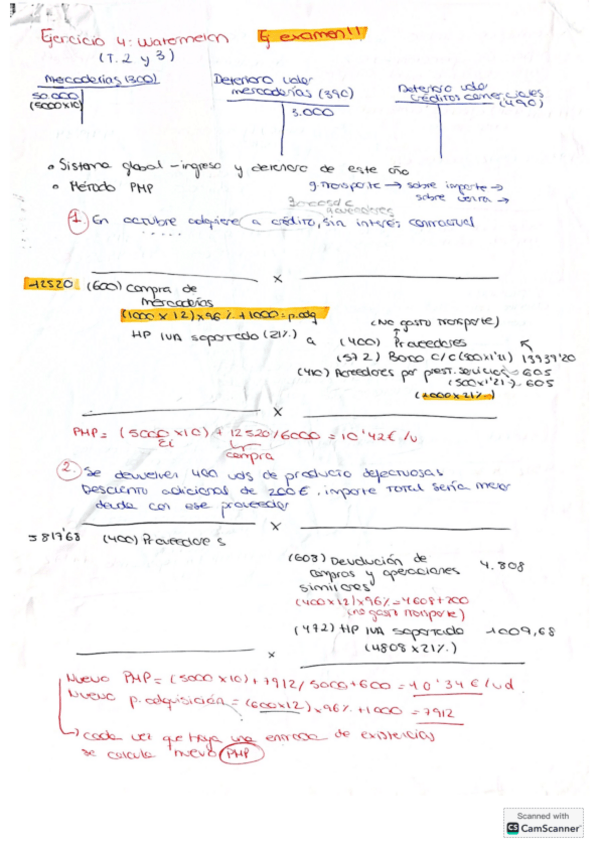 Ejercicio 4: Watermelon Ej examen!!
(T. 2 y 3)
Mercaderías (300)
50.000
(5000x10)
Deterioro valor
mercaderías (390)
3.000
Deterioro valor
créditos comerciales
(490)
• Sistema global - ingreso y deterioro de este año
• Método PMP
g. transporte → sobre importe →
sobre →
acreedores
1. En octubre adquiere a crédito, sin interés contractual
x
12520 (600) Compra de
mercaderías
(1000 x 12) x 96 % + 1000 = p. adq
HP IVA soportado (21%) a
(No gasto transporte)
(400) Proveedores
(572) Banco c/c (500x1'21) 13939'20
(410) Acreedores por prest. servicios 605
(500x1'21) 605
(1000x21%)
x
PMP = (5000 x10) + 12520/6000 = 10'42€/u
Ei
compra
2. Se devuelven 400 uds de producto defectuosas
Descuento adicional de 200€, importe total sería menor
deuda con ese proveedor
x
5817'68 (400) Proveedores
(608) Devolución de
compras y operaciones
similares
4.808
(400x12)x96%=4608+200
(no gasto transporte)
(472) HP IVA soportado 1009,68
(4808 x21%)
x
Nuevo PMP = (5000 x10) + 7912/5000+600 = 10'34€/ud.
Nuevo p. adquisición = (600x12) x96% + 1000 = 7912
→ cada vez que haya una entrada de existencias
se calcula nuevo PMP
Scanned with
CS CamScanner